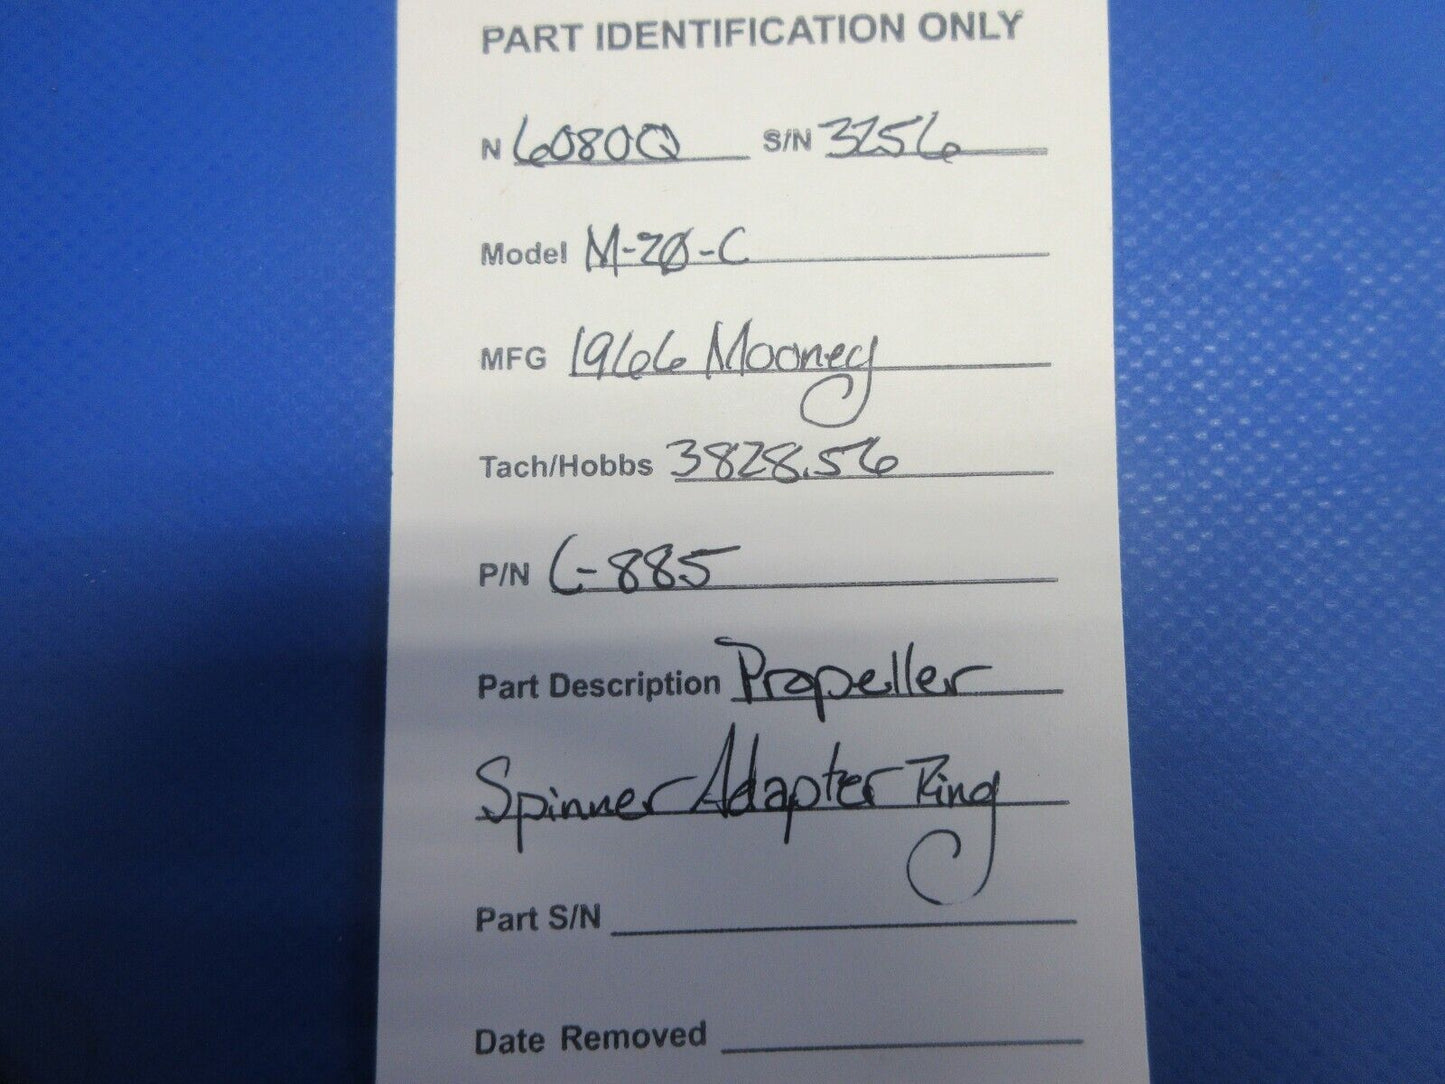 PART IDENTIFICATION ONLY
N 6080Q S/N 3256
Model M-20-C
MFG 1966 Mooney
Tach/Hobbs 3828.56
P/N C-885
Part Description Propeller
Spinner Adapter Ring
Part S/N
Date Removed